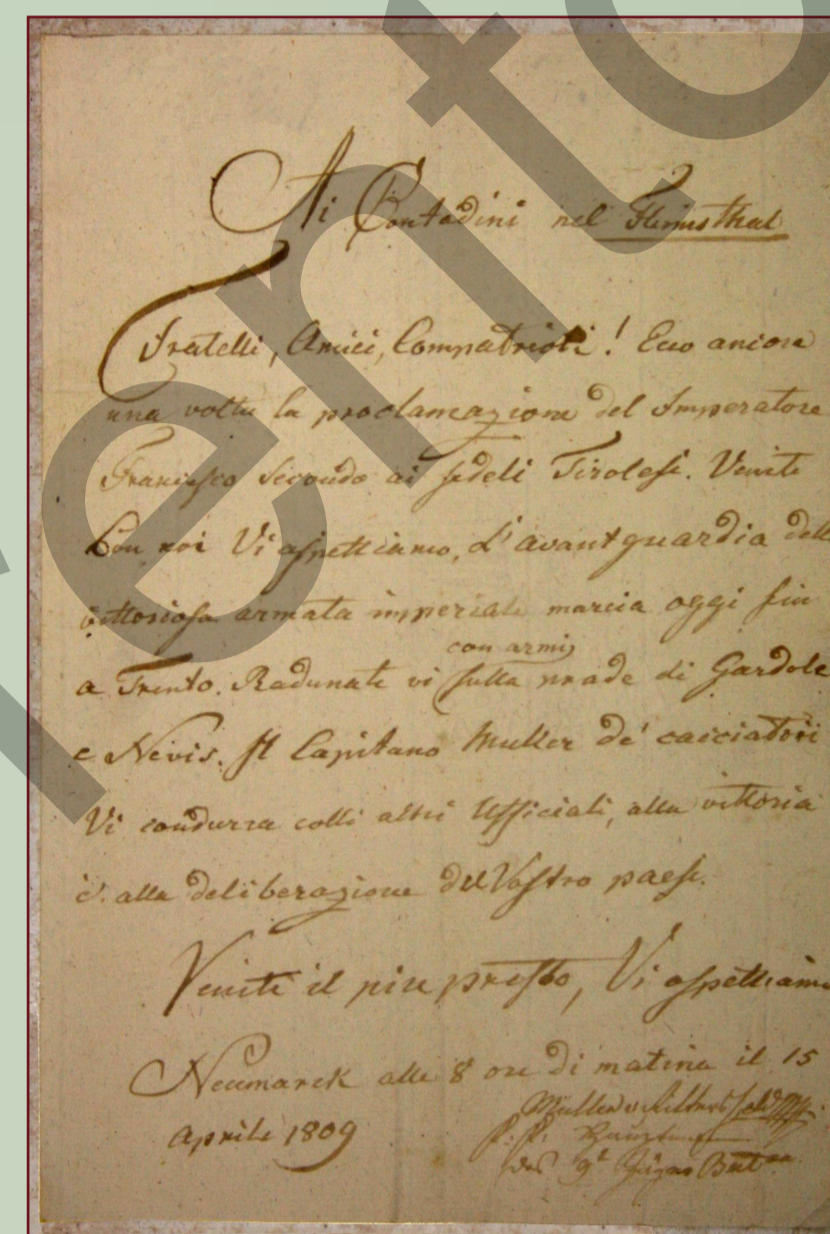 Ai Contadini nel Fleimsthal
Fratelli, Amici, Compatrioti! Ecco ancora
una volta la proclamazione del Imperatore
Francesco Secondo ai fedeli Tirolesi. Venite
Con noi Vi aspettiamo, l'avantguardia dell
vittoriosa armata imperiale marcia oggi fin
con armi
a Trento. Radunate vi sulla strade di Gardole
e Nevis. Il Capitano Muller de' cacciatori
Vi condurra colli altri Ufficiali, alla vittoria
e alla deliberazione del Vostro paese.
Venite il piu presto, Vi aspettiamo
Neumarck alle 8 ore di matina il 15
Aprile 1809
Müller v.
des 9t Jäger Bat